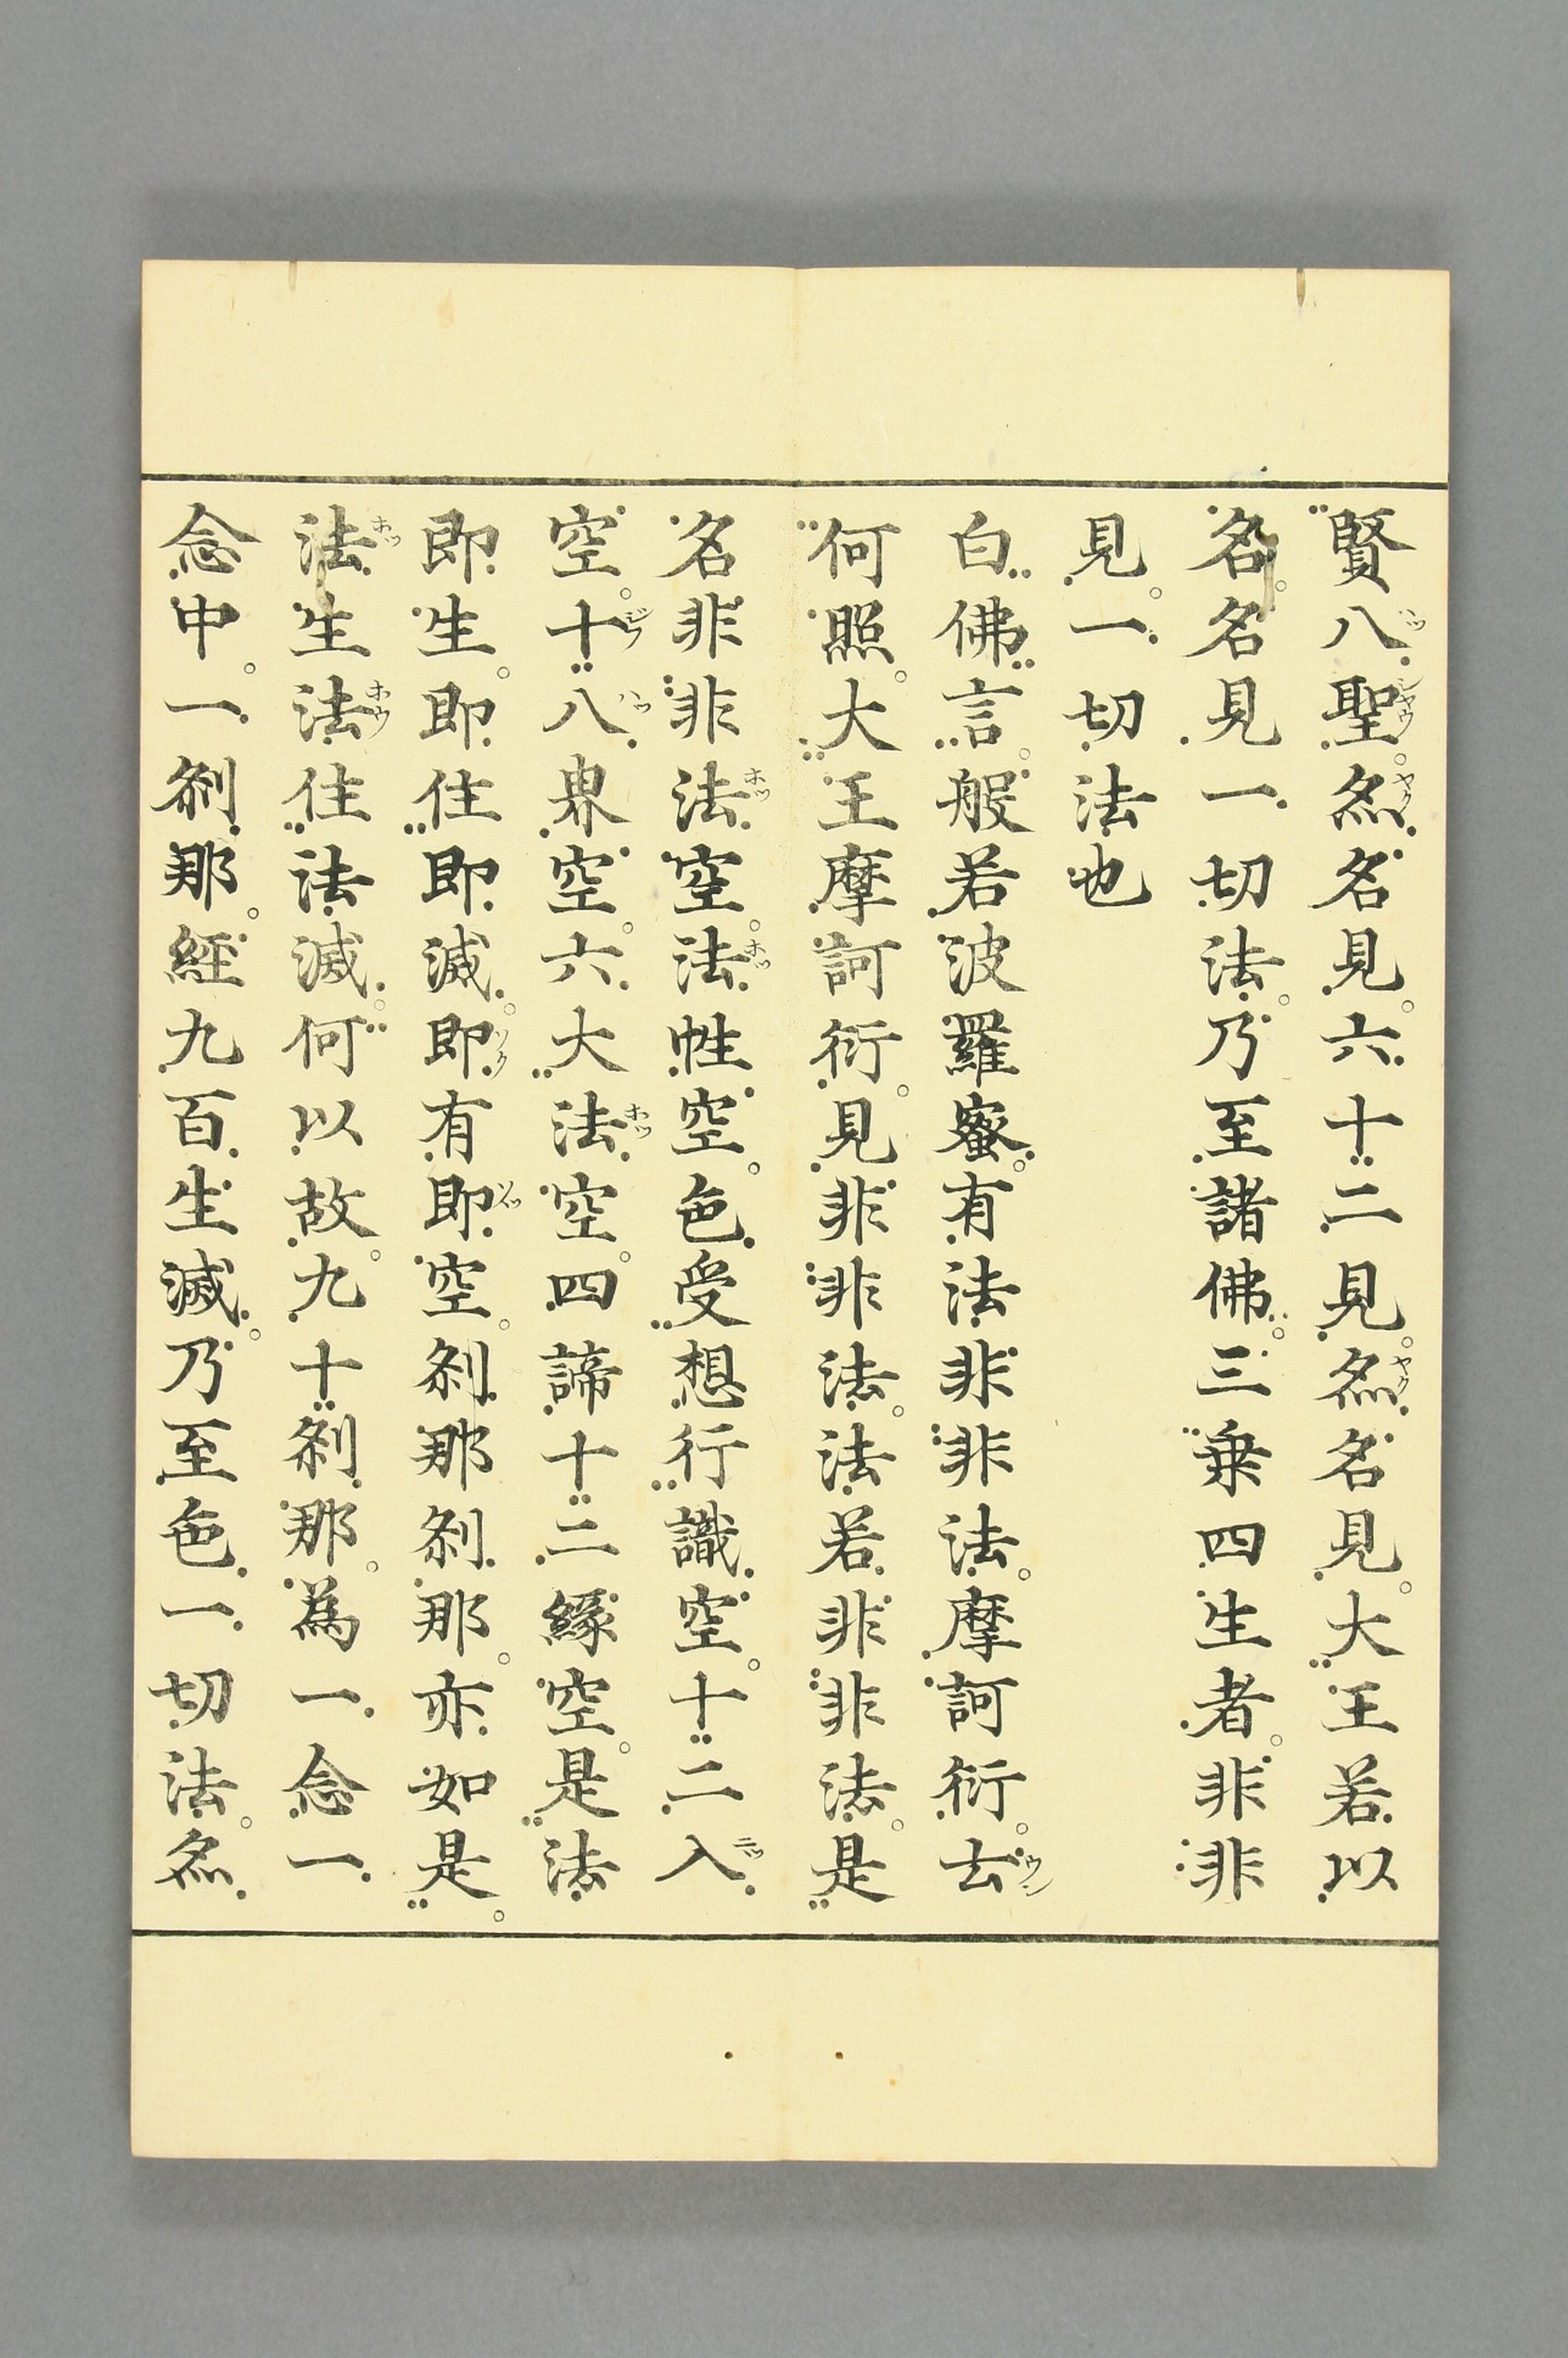 賢八聖。尒名見。六十二見。尒名見。大王若以
名。名見一切法。乃至諸佛。三乗四生者。非非
見。一切法也
白佛言。般若波羅蜜。有法非非法。摩訶衍。云
何照。大王摩訶衍。見非非法。法若非非法。是
名非非法空。法性空。色受想行識空。十二入
空。十八界空。六大法空。四諦十二緣空。是法
即生。即住即滅。即有即空。刹那刹那。亦如是。
法生法住法滅。何以故。九十刹那。為一念一
念中。一刹那。經九百生滅。乃至色一切法。尒